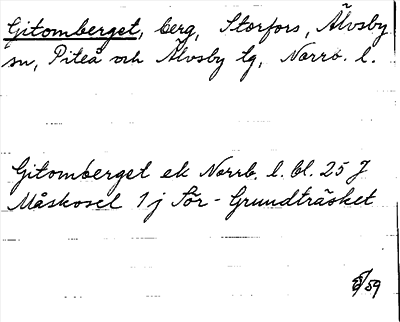 Gitomberget, berg, Storfors, Älvsby
sn, Piteå och Älvsby tg, Norrb. l.
Gitomberget ek Norrb. l. bl. 25 J
Måskosel 1 j Sör-Grundträsket
/59